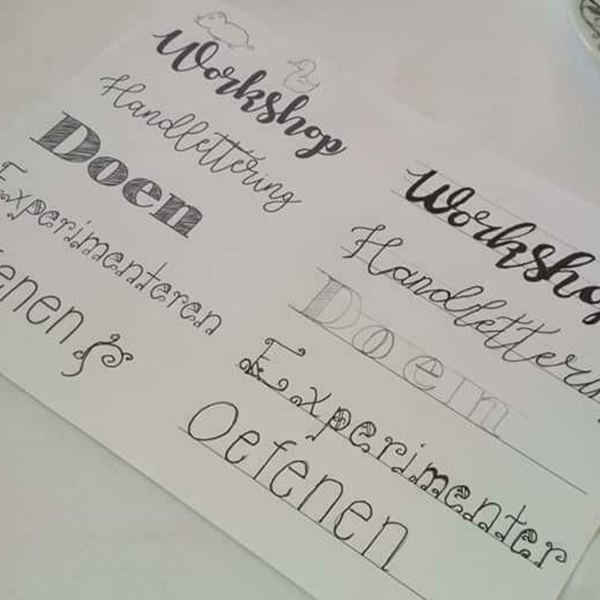 Workshop
Handlettering
Doen
Experimenteren
enen
Worksho
Handletterin
Doen
Experimenter
Oefenen